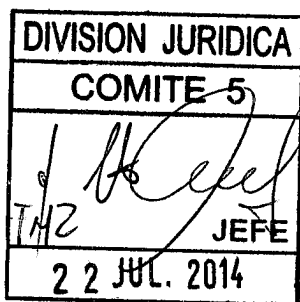 DIVISION JURIDICA
COMITE 5
TMZ
JEFE
22 JUL. 2014